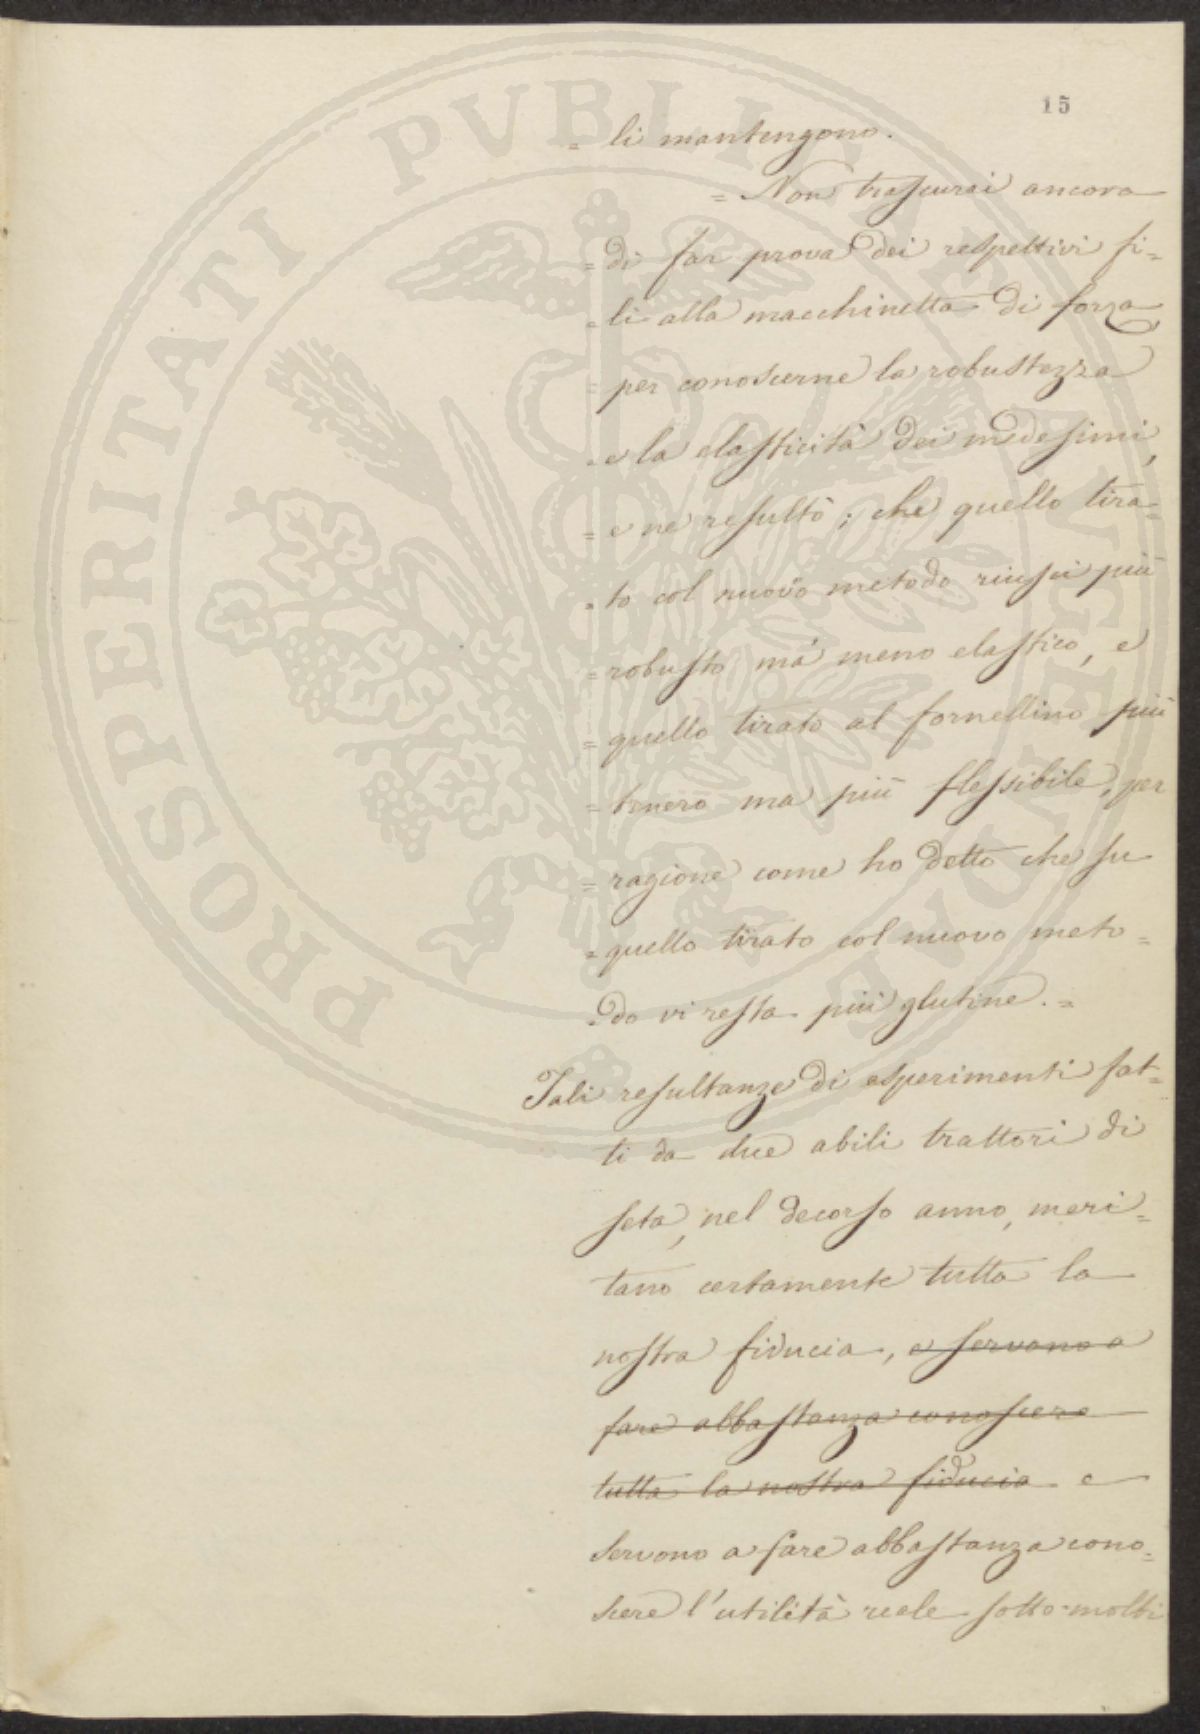 15
= li mantengono.
= Non trascurai ancora
= di far prova dei respettivi fi=
= li alla macchinetta di forza,
= per conoscerne la robustezza
= e la elasticità dei medesimi,
= e ne resultò; che quello tira=
= to col nuovo metodo riuscì più
= robusto mà meno elastico, e
= quello tirato al fornellino più
= tenero ma più flessibile, per
= ragione come ho detto che su
= quello tirato col nuovo meto=
= do vi resta più glutine. =
Tali resultanze di esperimenti fat=
ti da due abili trattori di
seta, nel decorso anno, meri=
tano certamente tutta la
nostra fiducia, e servono a
fare abbastanza conoscere
tutta la nostra fiducia e
servono a fare abbastanza cono=
scere l'utilità reale sotto molti
PROSPERITATI PVBLICAE AVGENDAE